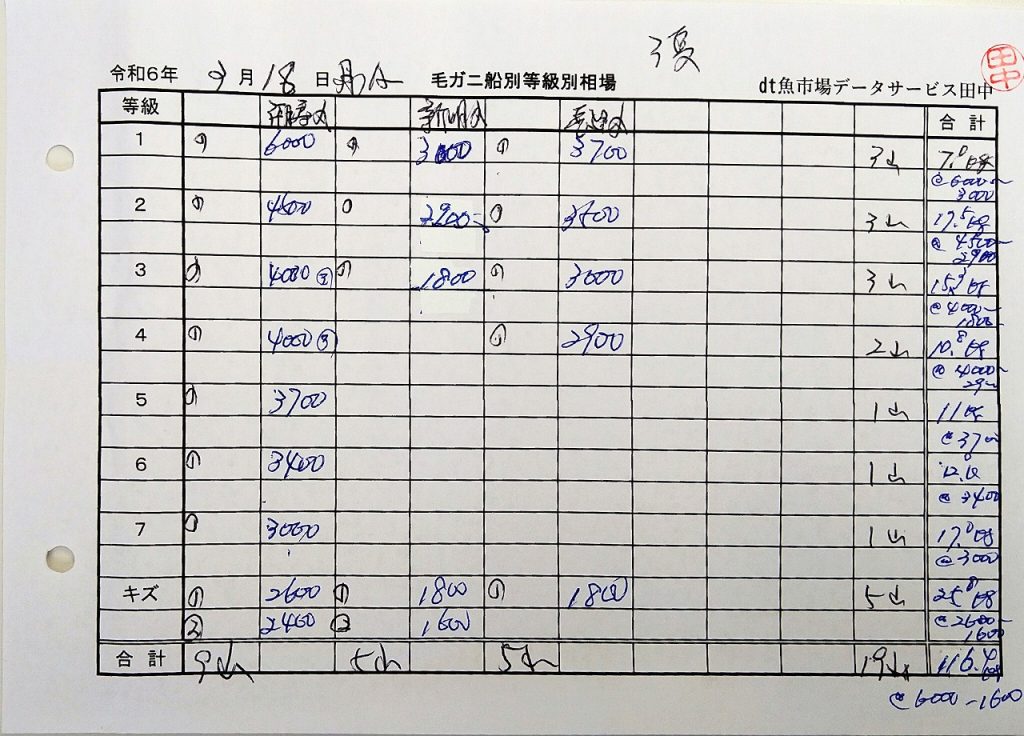 令和6年 月 18 日 毛ガニ船別等級別相場 dt魚市場データサービス田中
田中
等級 合計
1 ① 6000 ① 3000 ① 3700 3山 7.0
@6000〜
3000
2 ① 4500 ① 2900 ① 3400 3山 17.5
@4500〜
2900
3 ① 4000 ① 1800 ① 3000 3山
@4000〜
1800
4 ① 4000 ① 2900 2山 10.8
@4000〜
5 ① 3700 1山 11
6 ① 3400 1山
@3400
7 ① 3000 1山 17.0
@3000
キズ ① 2600 ① 1800 ① 1800 5山 25.8
② 2400 ② 1600 @2600〜
1600
合計 9山 5山 5山 19山
@6000-1600